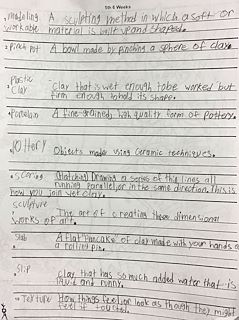 1st 6 Weeks
modeling A sculpting method in which a soft or
workable material is built up and shaped.
Pinch pot A bowl made by pinching a sphere of clay.
Plastic
clay clay that is wet enough to be worked but
firm enough to hold its shape.
Porcelain A fine grained, high quality form of pottery.
Pottery
Objects made using ceramic techniques.
Scoring (Hatching) Drawing a series of thin lines all
running parallel, or in the same direction. This is
how you join wet clay.
sculpture
The art of creating three dimensional
works of art.
Slab A flat pancake of clay made with your hands or
a rolling pin.
Slip
clay that has so much added water that is
liquid and runny.
Texture How things feel, or look as though they might
feel if touched.